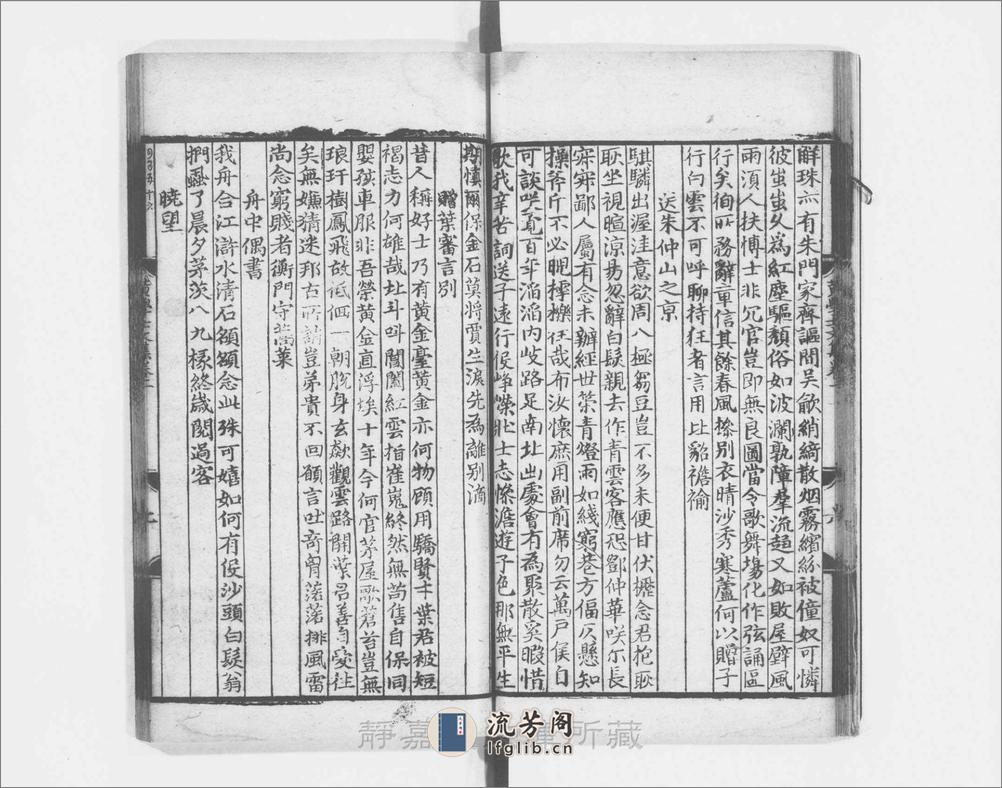 解珠亦有朱門家齊謳間吳歈綃縞散烟霧繽紛被僮奴可憐
彼蚩蚩久為紅塵驅頹俗如波瀾孰障羣流趨又如敗屋壁風
雨須人扶博士非冗官豈即無良圖當令歌舞塲化作弦誦區
行矣徇所務辭章信其餘春風摻別衣晴沙秀寒蘆何以贈子
行白雲不可呼聊持狂者言用比貂襜褕
送朱仲山之京
騏驎出渥洼意欲周八極芻豆豈不多未便甘伏櫪念君抱耿
耿坐視暄涼易忽辭白髮親去作青雲客應恐鄧仲華咲尓長
寂寂鄙人屬有念未辦經世策青燈雨如綫窮巷方偪仄懸知
操斧斤不必睨摴櫟狂哉布汝懷庶用副前席勿云萬戶侯自
可談咲覔百年滔滔內岐路足南北出處會有為聚散奚暇惜
歌我辛苦詞送子遠行役崢嶸壯士志慘澹遊子色那無平生
期慎爾保金石莫將賈生淚先為離別滴
贈葉審言別
昔人稱好士乃有黃金臺黃金亦何物顧用驕賢才葉君被短
褐志力何雄哉北斗叫閶闔紅雲指崔嵬終然無苟售自保同
嬰孩車服非吾榮黃金直浮埃十年今何官茅屋歌蒼苔豈無
琅玕樹鳳飛故低佪一朝脫身去歘觀雲路開葉君善自愛往
矣無嫌猜迷邦古所誚豈弟貴不回願言吐奇胷落落排風雷
尚念窮賤者衡門守蒿萊
舟中偶書
我舟合江滸水清石額額念此殊可嬉如何有役沙頭白髮翁
捫蝨了晨夕茅茨八九椽終歲閱過客
曉望
靜嘉 所藏
流芳阁
lfglib.cn